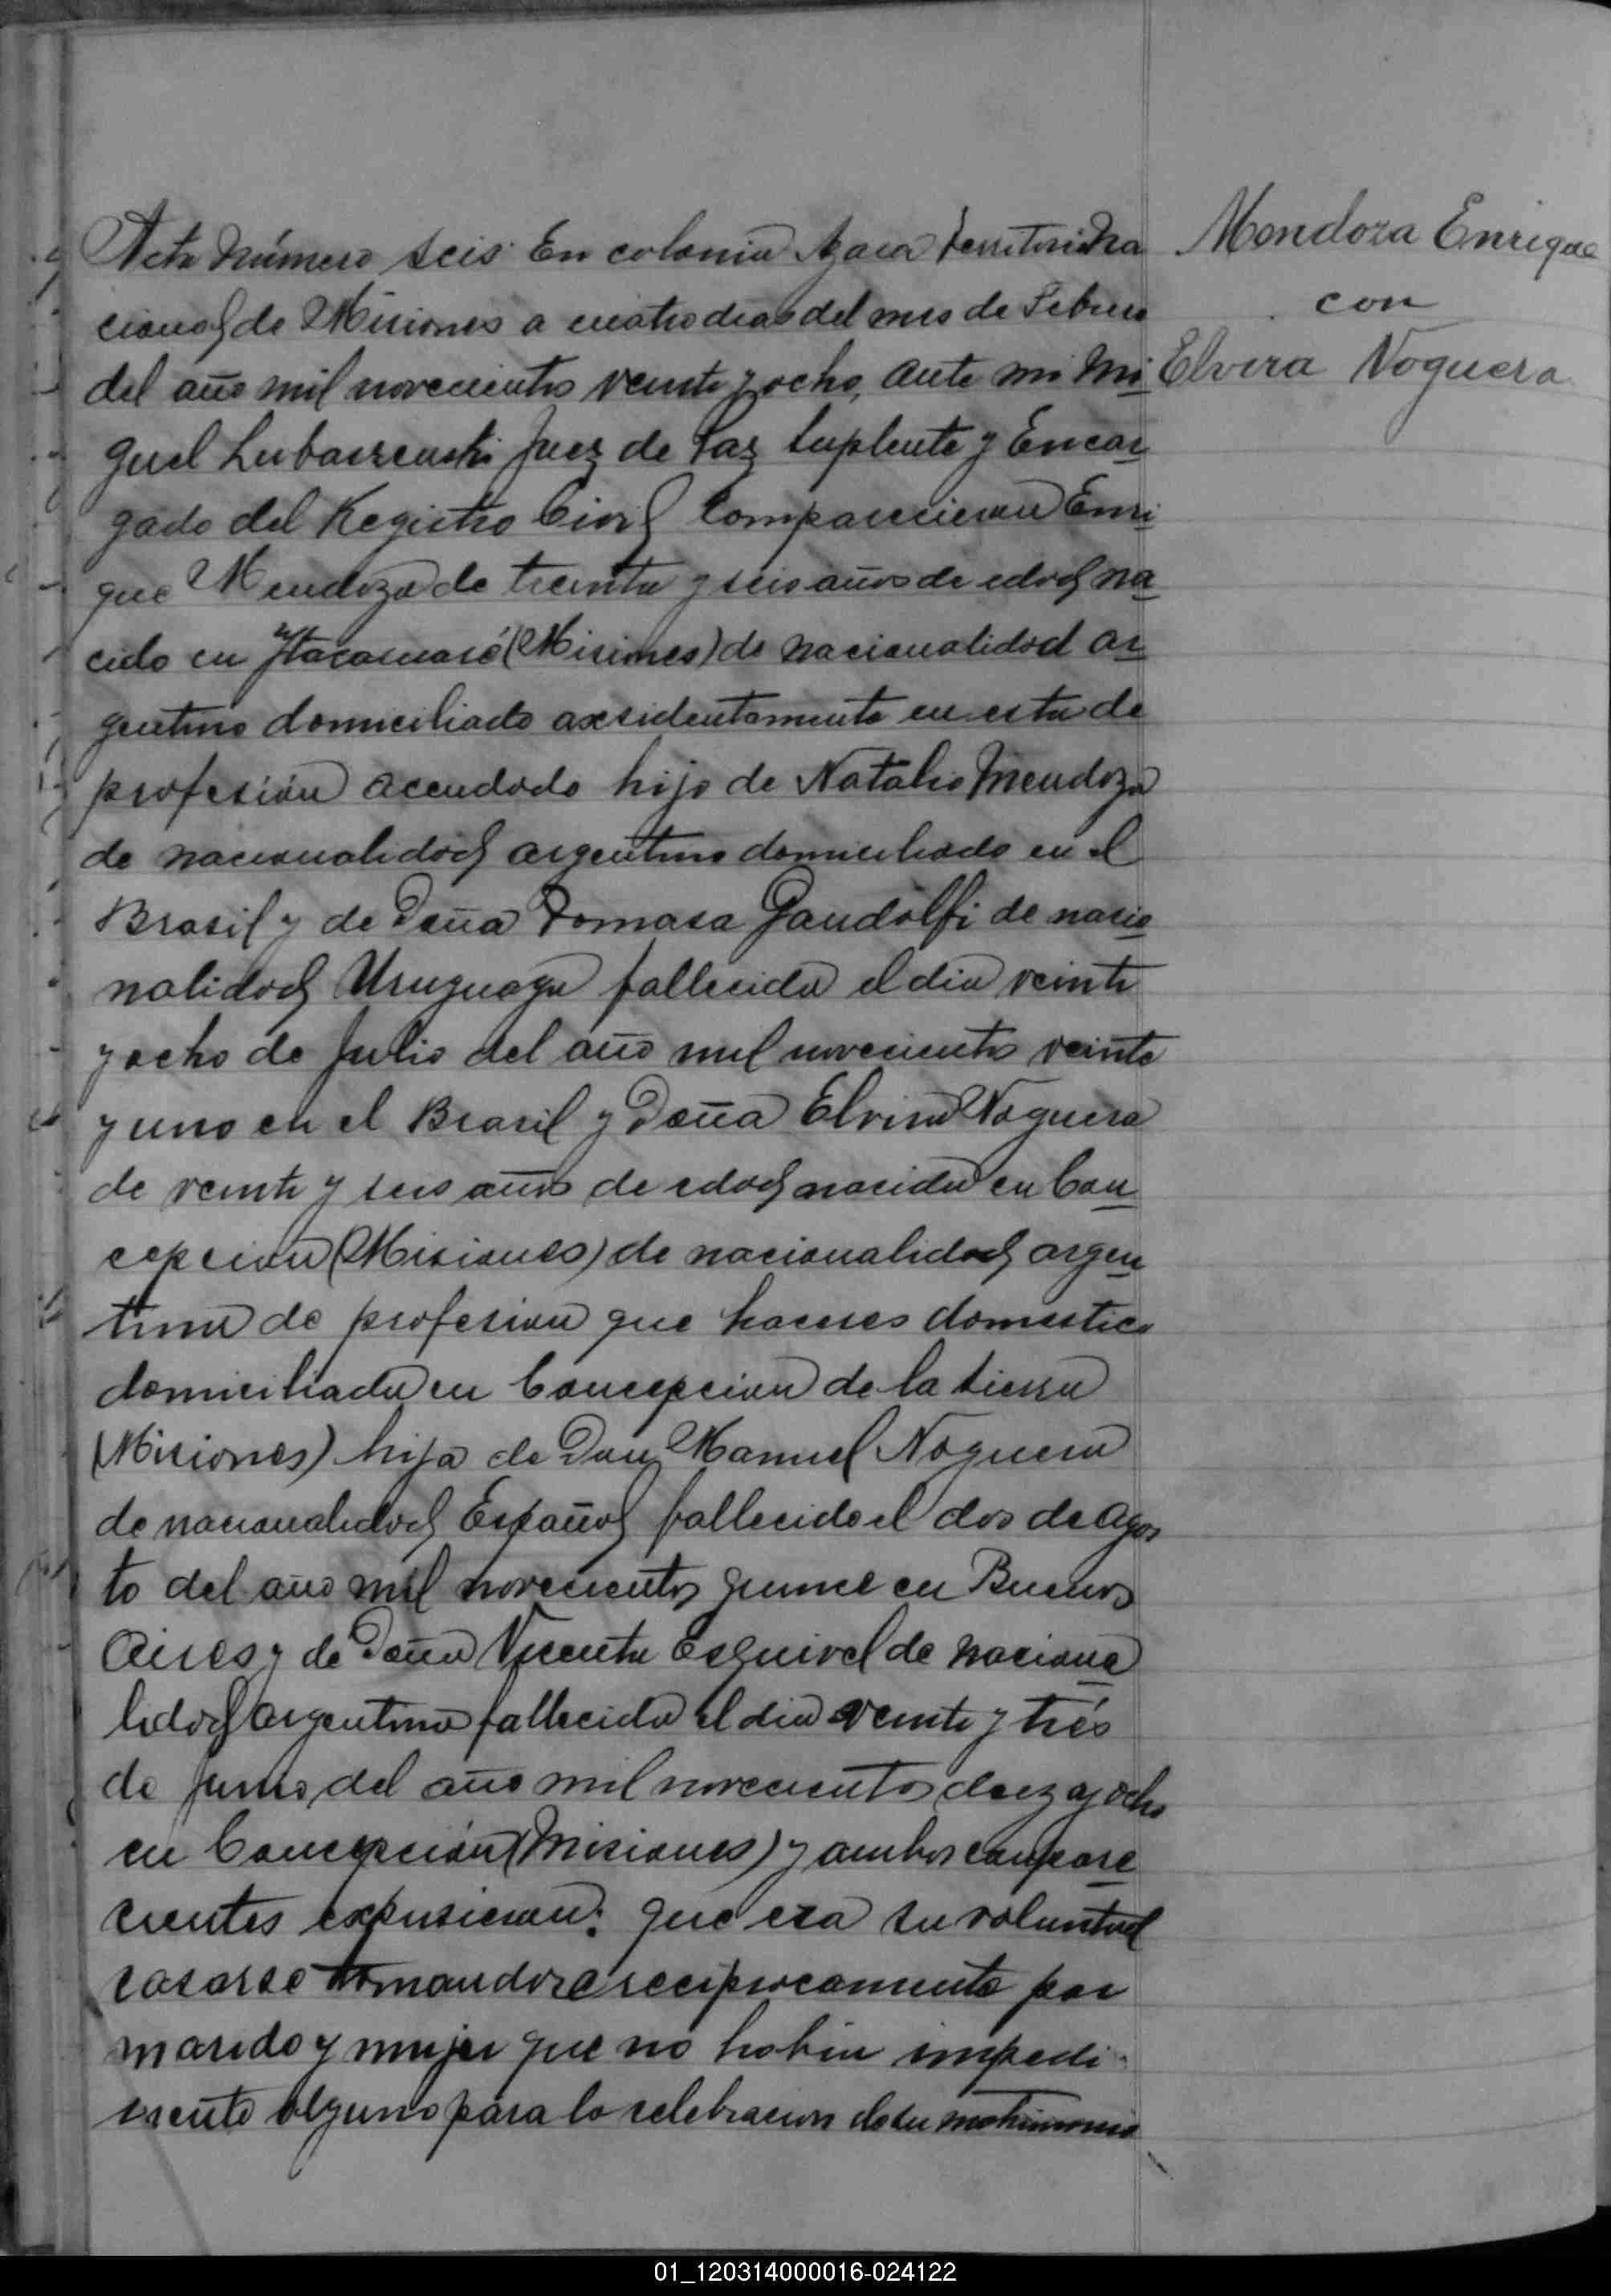 Acta Número seis. En colonia Azara Territorio Na
cional de Misiones a cuatro dias del mes de Febrero
del año mil novecientos veinte y ocho, ante mi Mi
guel Lubaszeuski Juez de Paz Suplente y Encar
gado del Registro Civil Comparecieron Enri
que Mendoza de treinta y seis años de edad na
cido en Itacaruaré (Misiones) de nacionalidad ar
gentino domiciliado axsidentamente en esta de
profesión acendado hijo de Natalio Mendoza
de nacionalidad argentino domiciliado en el
Brasil y de Doña Tomasa Gandolfi de nacio
nalidad Uruguaya fallecida el dia veinte
y ocho de Julio del año mil novecientos veinte
y uno en el Brasil y Doña Elvira Noguera
de veinte y seis años de edad nacida en Con
cepcion (Misiones) de nacionalidad argen
tina de profesion que haceres domestico
domiciliada en Concepcion de la Sierra
(Misiones) hija de Don Manuel Noguera
de nacionalidad Español fallecido el dos de Agos
to del año mil novecientos quince en Buenos
Aires y de Doña Vicenta Esquivel de naciona
lidad argentina fallecida el dia veinte y trés
de Junio del año mil novecientos diez y ocho
en Concepción (Misiones) y ambos compare
cientes expusieron: que era su voluntad
casarse tomandose reciprocamente por
marido y mujer que no habia impedi
mento alguno para la celebracion de su matrimonio
Mendoza Enrique
con
Elvira Noguera
01_120314000016-024122